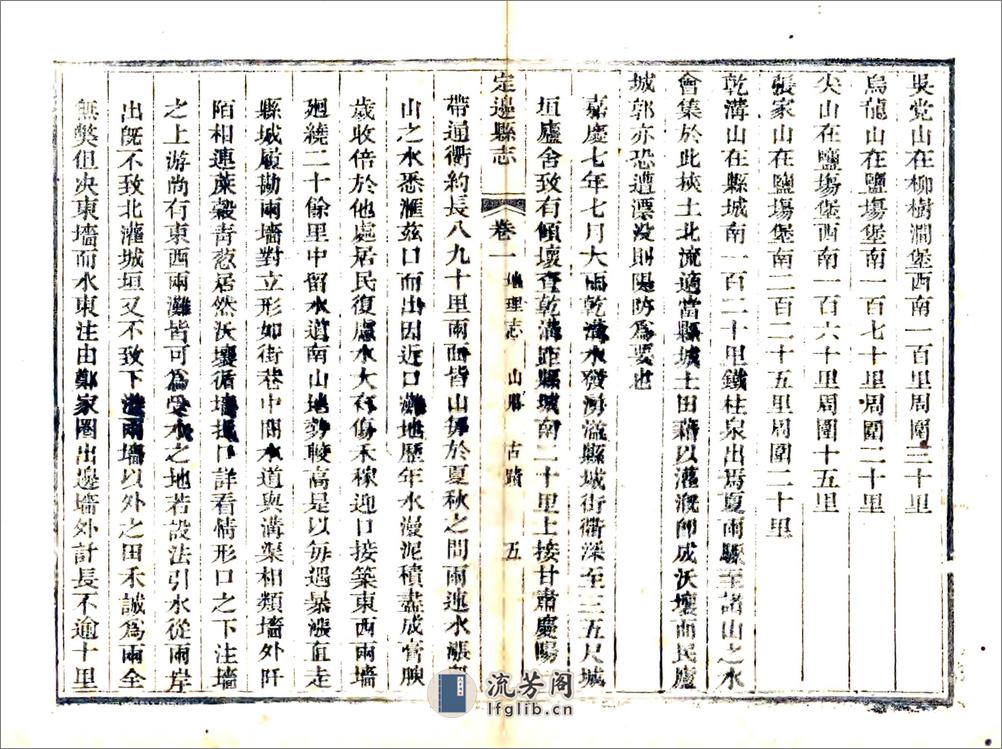 吳党山在柳樹澗堡西南一百里周圍三十里
烏龍山在鹽場堡南一百七十里周圍二十里
尖山在鹽場堡西南一百六十里周圍十五里
張家山在鹽塲堡南二百二十五里周圍二十里
乾溝山在縣城南一百二十里鐵柱泉出焉夏雨驟至諸山之水
會集於此挾土北流適當縣城土田藉以灌溉卽成沃壤而民廬
城郭亦恐遭漂没則隄防爲要也
嘉慶七年七月大雨乾溝水發湧溢縣城街衢深至三五尺城
垣廬舍致有傾壞查乾溝距縣城南二十里上接甘肅慶陽
定邊縣志
卷一
地理志
山川
古蹟
五
帶通衢約長八九十里兩面皆山每於夏秋之間雨連水漲
山之水悉滙兹口而出因近口灘地歷年水漫泥積盡成膏腴
歲收倍於他處居民復慮水大有傷禾稼迎口接築東西兩墻
廻繞二十餘里中留水道南山地勢較高是以每遇暴漲直走
縣城履勘兩墻對立形如街巷中間水道與溝渠相類墻外阡
陌相連蔴穀青葱居然沃壤循墻口詳看情形口之下注墻
之上游尚有東西兩灘皆可爲受水之地若設法引水從兩岸
出旣不致北灌城垣又不致下淹兩墻以外之田禾誠爲兩全
無獘但决東墻而水東注由鄭家圈出邊墻外計長不逾十里
流芳阁
lfglib.cn